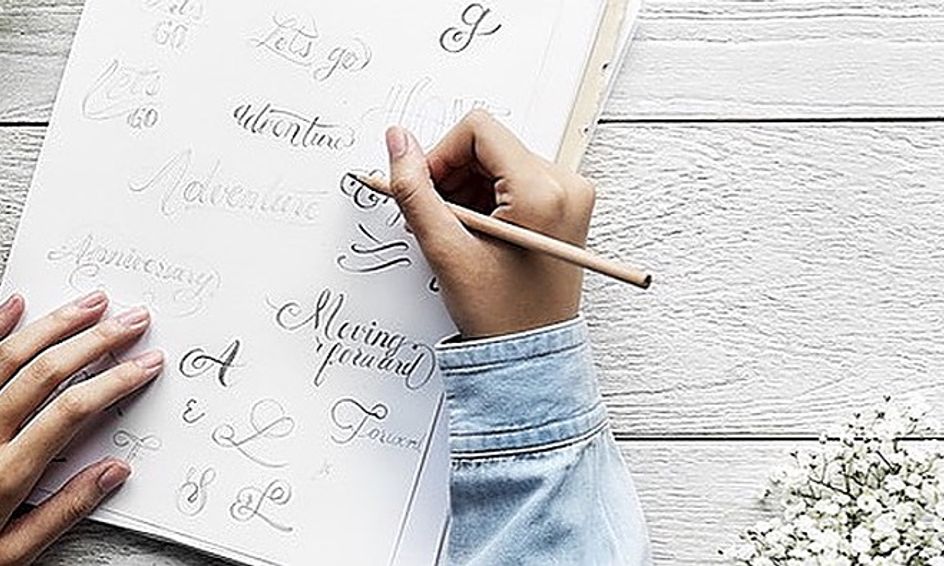 Let's
GO
Let's go
g
Let's
GO
adventure
Adventure
Anniversary
Moving
forward
A
Forward
E
L
T
S
L